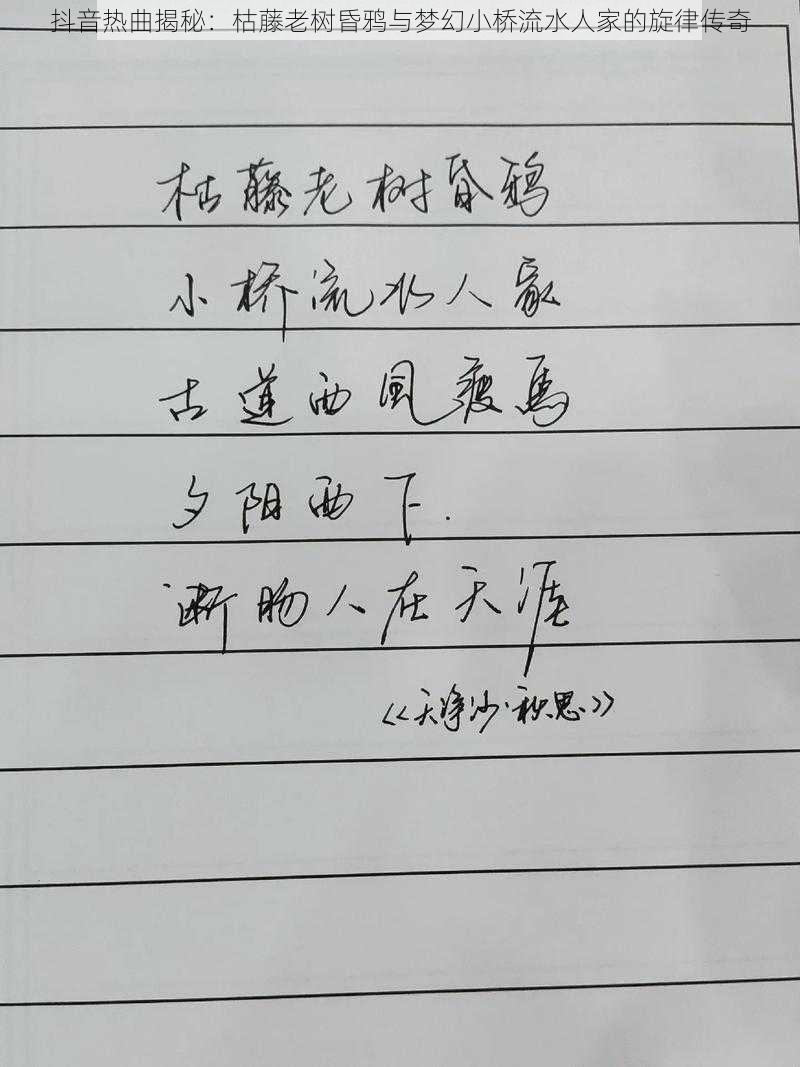 抖音热曲揭秘：枯藤老树昏鸦与梦幻小桥流水人家的旋律传奇
枯藤老树昏鸦
小桥流水人家
古道西風瘦馬
夕阳西下.
断肠人在天涯
《天净沙·秋思》